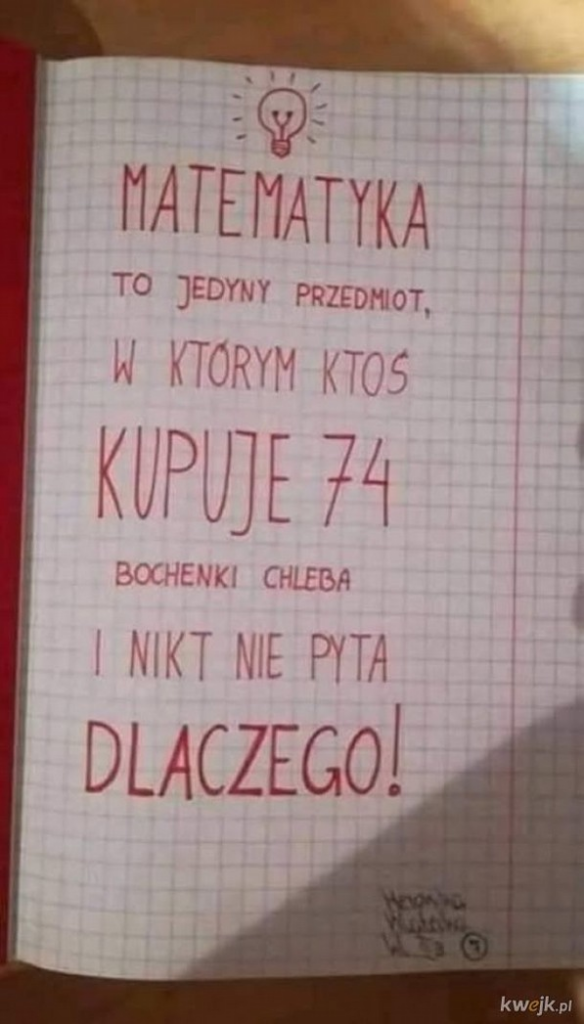 MATEMATYKA
TO JEDYNY PRZEDMIOT,
W KTÓRYM KTOŚ
KUPUJE 74
BOCHENKI CHLEBA
I NIKT NIE PYTA
DLACZEGO!
Weronika
kl.
kwejk.pl